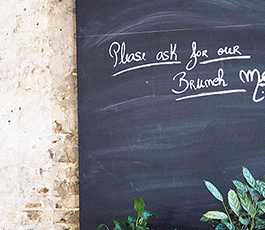 Please ask for our
Brunch M